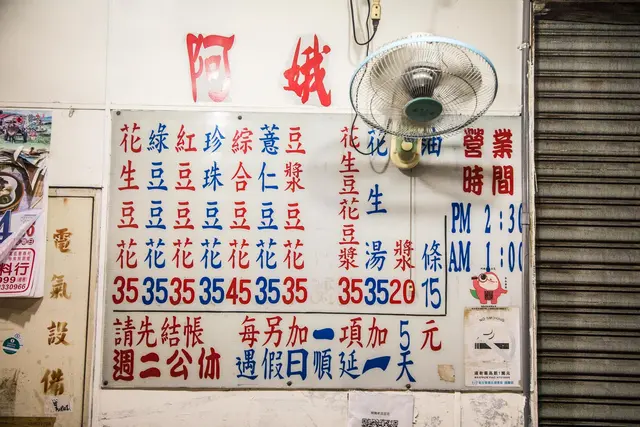 阿娥
花生豆花 35
綠豆豆花 35
紅豆豆花 35
珍珠豆花 35
綜合豆花 45
薏仁豆花 35
豆漿豆花 35
花生豆花豆漿 35
花生湯 35
漿 20
油條 15
營業時間
PM 2:3
AM 1:00
請先結帳 每另加一項加5元
週二公休 遇假日順延一天
電氣設備
料行